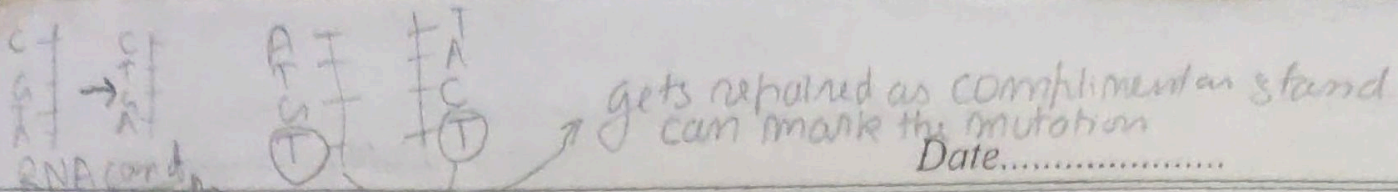 C
G
T
A
→
C
T
G
A
A
T
G
T
T
A
C
T
gets repaired as complimentary stand
can mark the mutation
Date.......................
RNA